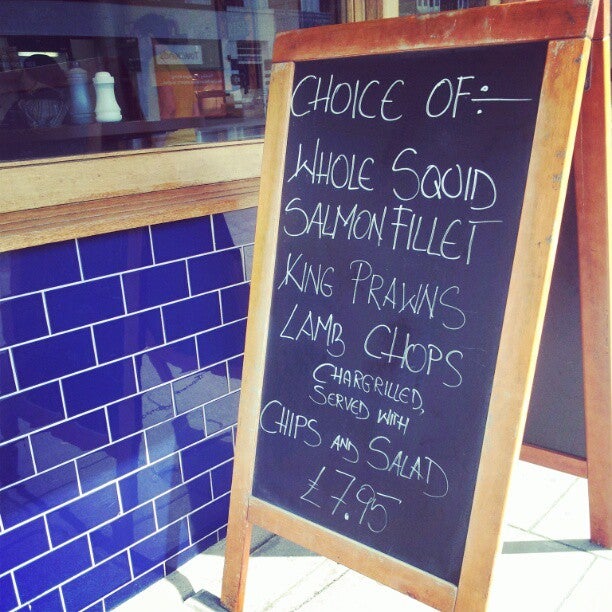 CHOICE OF:-
WHOLE SQUID
SALMON FILLET
KING PRAWNS
LAMB CHOPS
CHARGRILLED,
SERVED WITH
CHIPS AND SALAD
£7.95